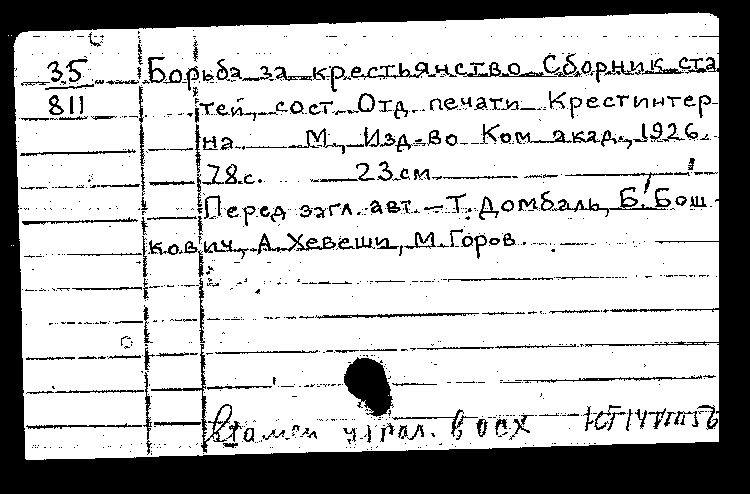 35
811
Борьба за крестьянство Сборник ста
тей, сост. Отд. печати Крестинтер
на. М., Изд-во Ком. акад., 1926.
78с. 23см
Перед загл. авт. – Т. Домбаль, Б. Бош-
кович, А. Хевеши, М. Горов.
взамен утрач. в осх